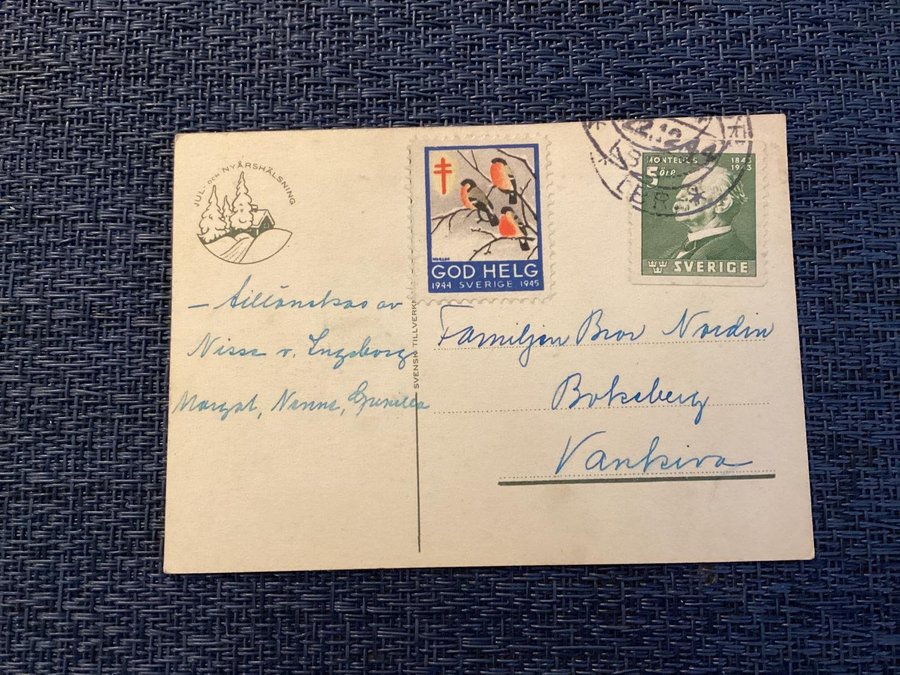 JUL- OCH NYÅRSHÄLSNING
– tillönskas av
Nisse o. Ingeborg
Margot, Nanna, Gunilla
SVENSK TILLVERKN
GOD HELG
1944 SVERIGE 1945
22.12.44
MONTELIUS 1843
5 ÖRE 1943
SVERIGE
Familjen Bror Nordin
Bokeberg
Vankiva